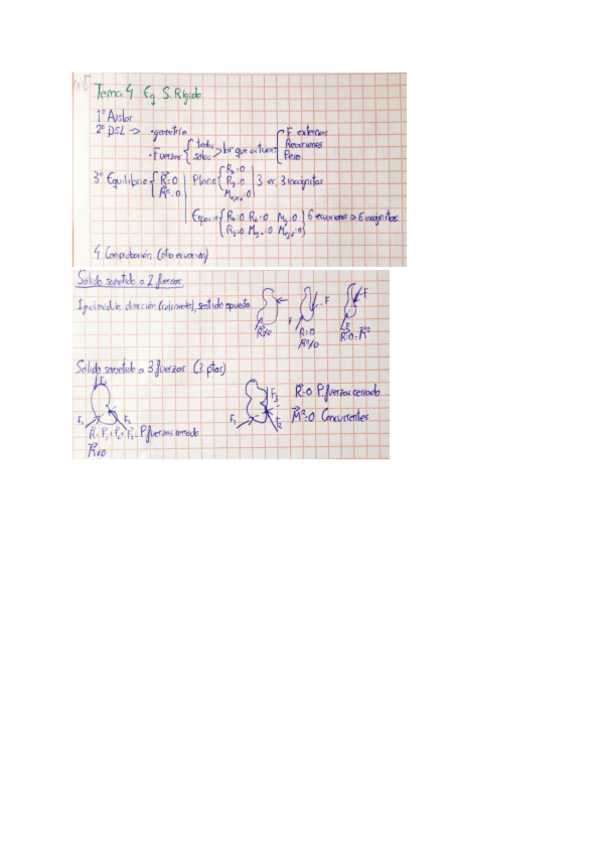 Tema 4 Eq S. Rígido
1º Aislar
2º DSL -> · geometría
· Fuerzas { todas solas > las que actuan { F. externas Reacciones Peso
3º Equilibrio { R=0 M=0 | Plano { Rx=0 Ry=0 3 ec, 3 incógnitas
Espacio { 6 ecuaciones > 6 incógnitas
4 Comprobación (otra ecuación)
Sólido sometido a 2 fuerzas
Igual módulo, dirección, sentido opuesto
F
F
F
R≠0
R=0
Sólido sometido a 3 fuerzas (3 ptos)
F3
F1
F2
P. fuerzas cerrado
R=0
F3
F1
F2
R=0 P. fuerzas cerrado
M=0 Concurrentes